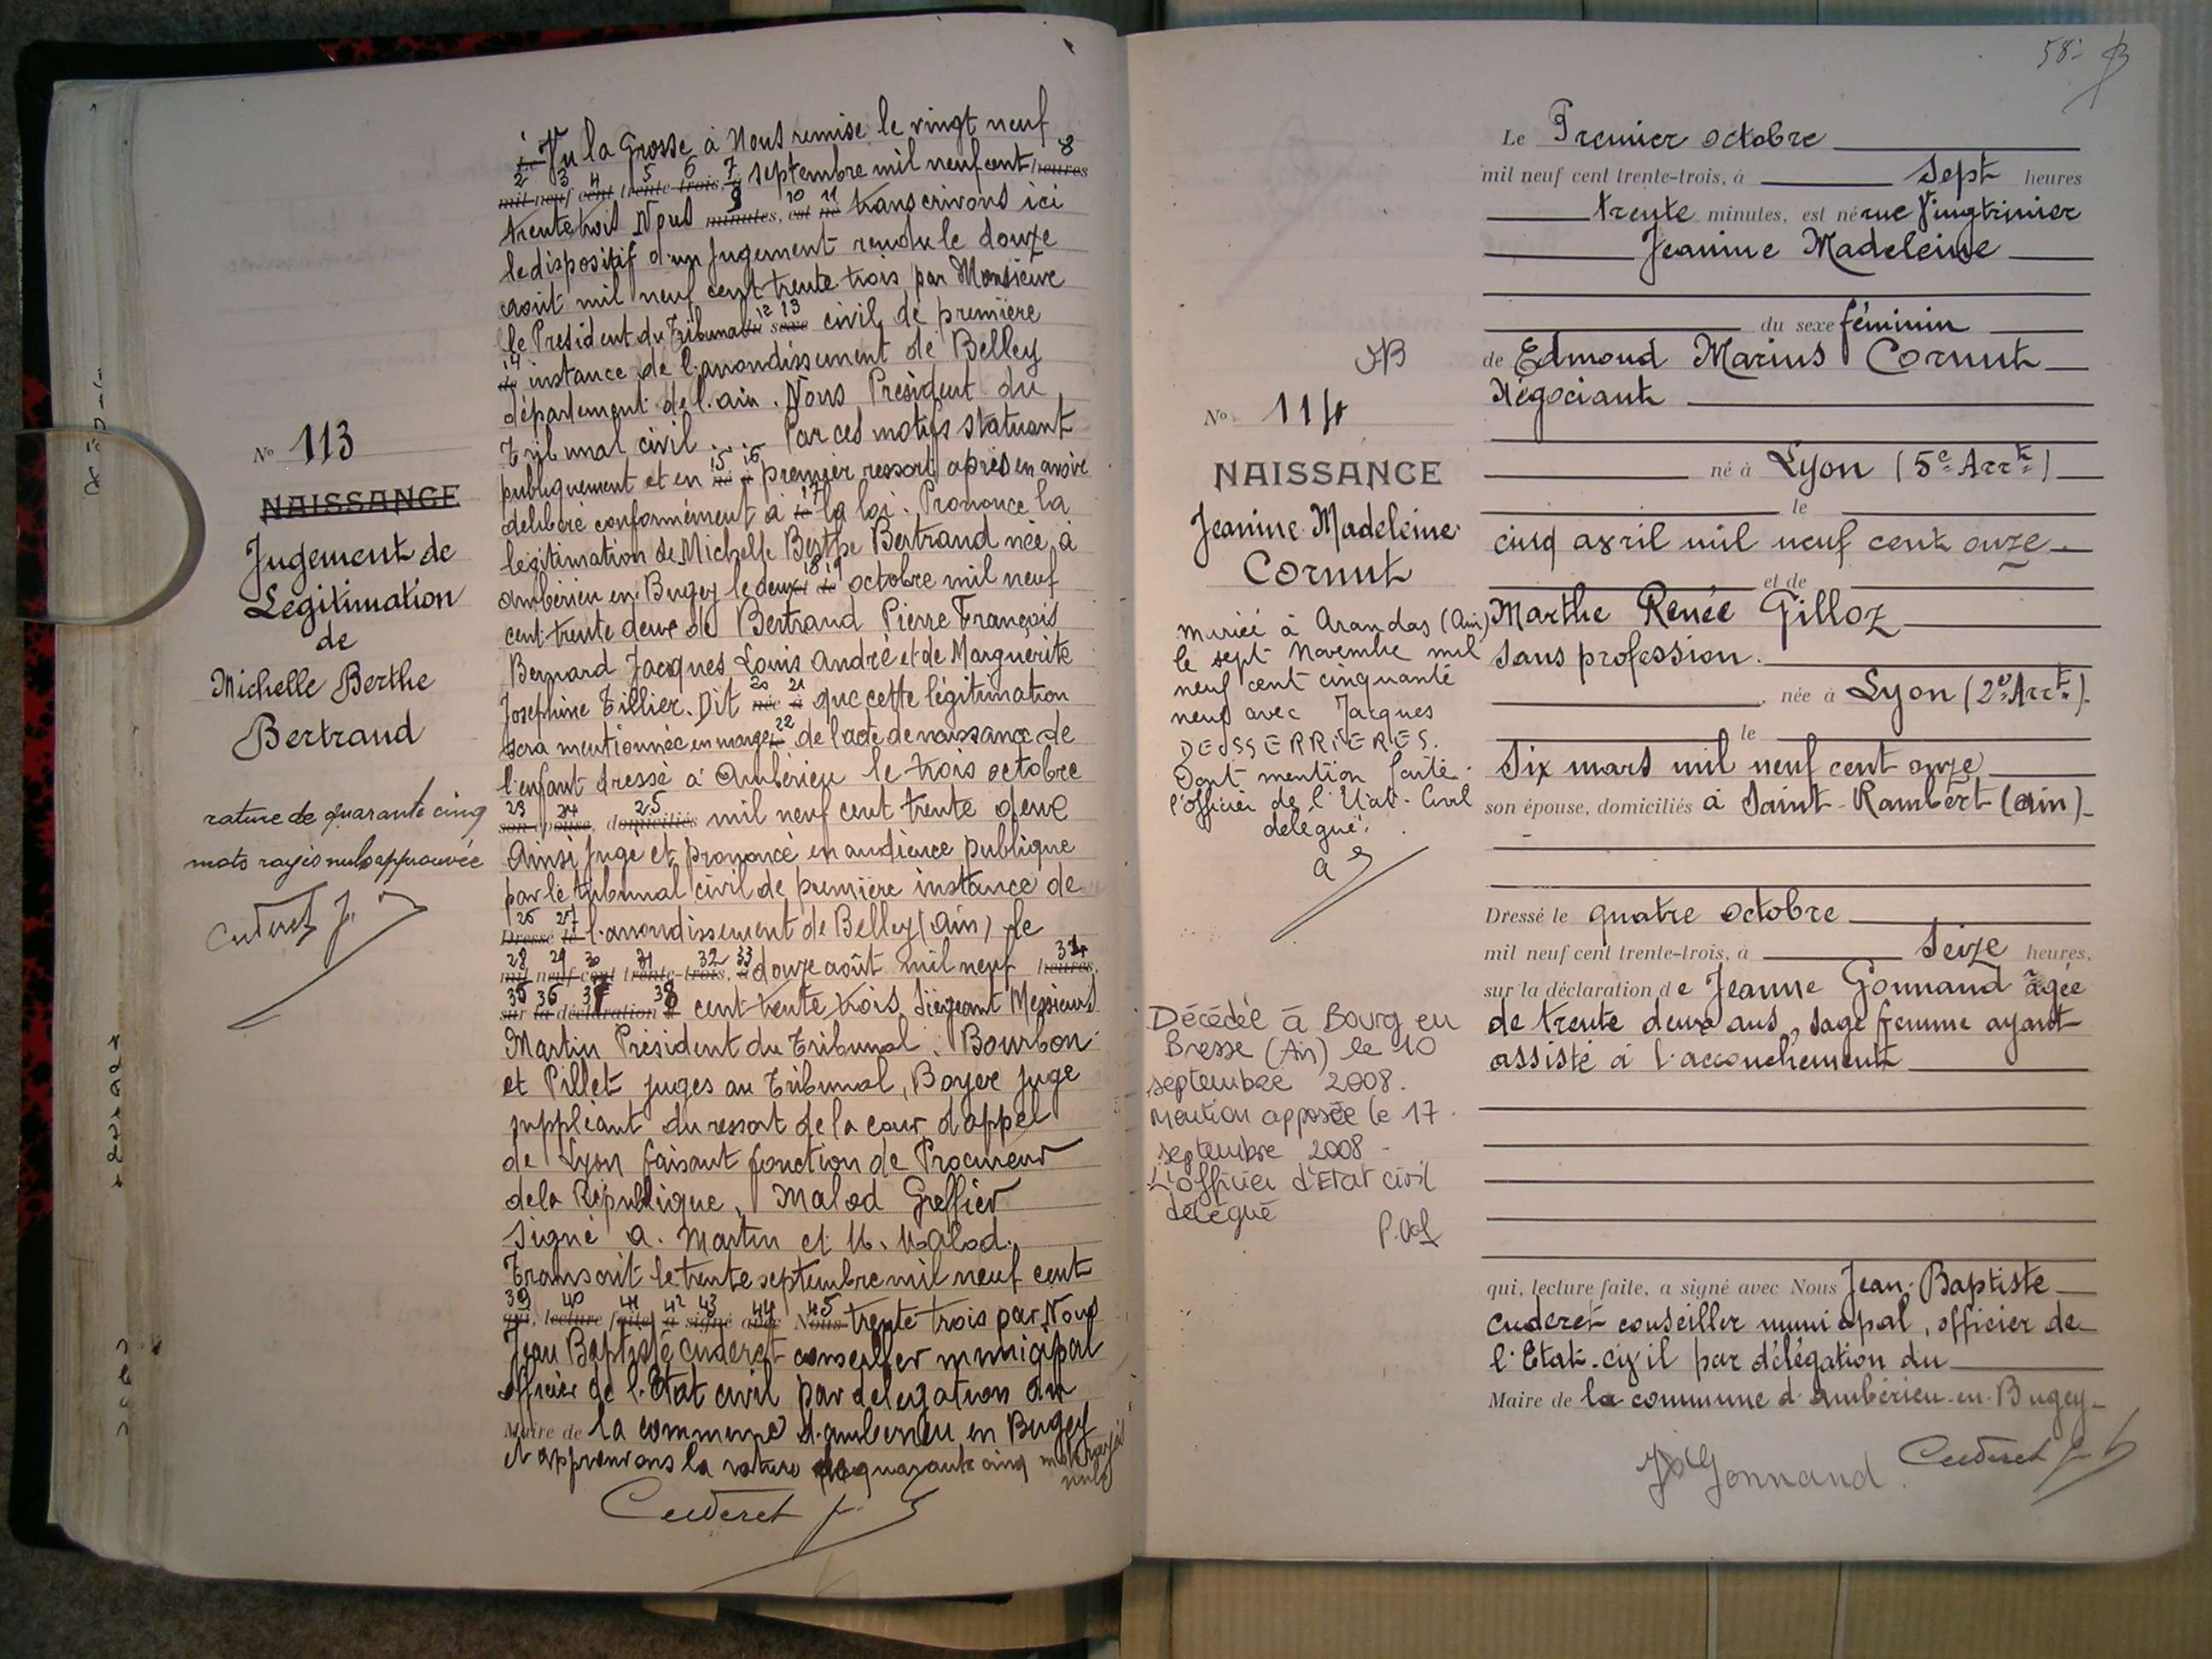 Nº 113
NAISSANCE
Jugement de
Légitimation
de
Michelle Berthe
Bertrand
rature de quarante cinq
mots rayés nuls approuvée
Cuderet J.
1
le Vu la Grosse à Nous remise le vingt neuf
2 3 4 5 6 7 8
mil neuf cent trente-trois, à septembre mil neuf cent heures
9 10 11
trente trois Nous minutes, est né transcrivons ici
le dispositif d'un Jugement rendu le douze
août mil neuf cent trente trois par Monsieur
12 13
le Président du Tribunal du sexe civil de première
14
de instance de l'arrondissement de Belley
département de l'ain. Nous Président du
Tribunal civil .... Par ces motifs statuant
15 16
publiquement et en né à premier ressort après en avoir
17
délibéré conformément à le la loi. Prononce la
légitimation de Michelle Berthe Bertrand née à
18 19
ambérieu en Bugey le deux et de octobre mil neuf
cent trente deux de Bertrand Pierre François
Bernard Jacques Louis André et de Marguerite
20 21
Josephine Tillier. Dit née à que cette légitimation
22
sera mentionnée en marge le de l'acte de naissance de
l'enfant dressé à Ambérieu le trois octobre
23 24 25
son épouse, domiciliés mil neuf cent trente deux
Ainsi jugé et prononcé en audience publique
par le tribunal civil de première instance de
26 27
Dressé le l'arrondissement de Belley (Ain) le
28 29 30 31 32 33 34
mil neuf cent trente-trois, à douze août mil neuf heures,
35 36 37 38
sur la déclaration d cent trente trois. Siégeant Messieurs
Martin Président du Tribunal, Bourbon
et Pillet juges au Tribunal, Boyer juge
suppléant du ressort de la cour d'appel
de Lyon faisant fonction de Procureur
de la République, Malod Greffier
Signé A. Martin et M. Malod.
Transcrit le trente septembre mil neuf cent
39 40 41 42 43 44 45
qui, lecture faite, a signé avec Nous trente trois par Nous
Jean Baptiste Cuderet conseiller municipal
officier de l'Etat civil par délégation du
Maire de la commune d'ambérieu en Bugey
et approuvons la rature de quarante cinq mots rayés
nuls
Cuderet J
58
Nº 114
NAISSANCE
Jeanine Madeleine
Cornut
mariée à Arandas (Ain)
le sept Novembre mil
neuf cent cinquante
neuf avec Jacques
DEUSSERRIERES.
Dont mention faite.
l'officier de l'Etat-Civil
délégué.
Décédée à Bourg en
Bresse (Ain) le 10
septembre 2008.
Mention apposée le 17
septembre 2008 -
L'officier d'Etat civil
délégué
Le Premier octobre
mil neuf cent trente-trois, à Sept heures
trente minutes, est né rue Vingtrinier
Jeanine Madeleine
du sexe féminin
de Edmond Marius Cornut
Négociant
né à Lyon (5e Arrt)
le
cinq avril mil neuf cent onze
et de
Marthe Renée Gilloz
Sans profession.
, née à Lyon (2e Arrt).
le
Six mars mil neuf cent onze
son épouse, domiciliés à Saint-Rambert (ain)
Dressé le quatre octobre
mil neuf cent trente-trois, à Seize heures,
sur la déclaration de Jeanne Gonnand âgée
de trente deux ans, sage femme ayant
assisté à l'accouchement
qui, lecture faite, a signé avec Nous Jean-Baptiste
Cuderet conseiller municipal, officier de
l'Etat-civil par délégation du
Maire de la commune d'Ambérieu-en-Bugey
Gonnand Cuderet